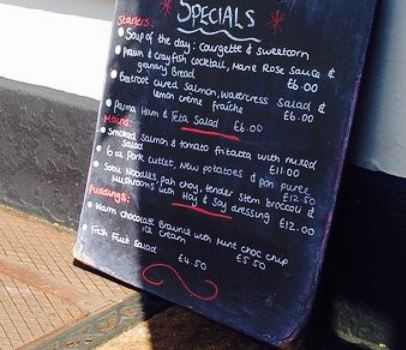 * SPECIALS *
Starters:
• Soup of the day: Courgette & sweetcorn
• prawn & crayfish cocktail, Marie Rose Sauce &
granary Bread £6.00
• Beetroot cured Salmon, Watercress Salad &
lemon crème fraîche £6.00
• Parma Ham & Feta Salad £6.00
Mains:
• Smoked Salmon & tomato frittatta with mixed
Salad £11.00
• 6 oz pork cutlet, New potatoes & pea puree
£12.50
• Soba Noodles, pak choy, tender stem broccoli &
Mushrooms with Hoy & Soy dressing £12.00
Puddings:
• Warm chocolate Brownie with Mint choc chip
ice cream £5.50
• Fresh Fruit Salad
£4.50